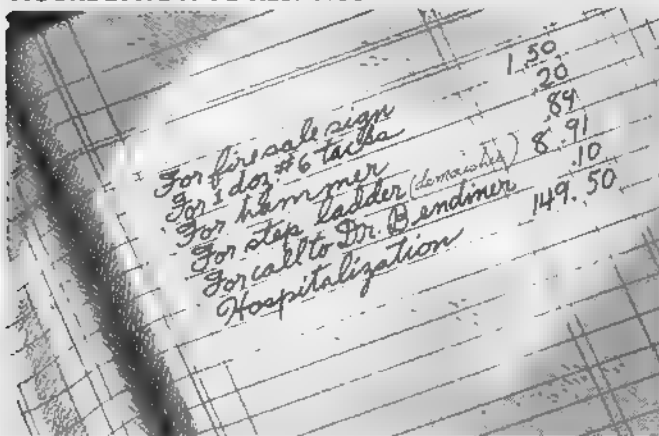 For fire sale sign 1.50
For 1 doz #6 tacks 20
For hammer .89
For step ladder (demolished) 8.91
For call to Dr. Bendiner .10
Hospitalization 149.50